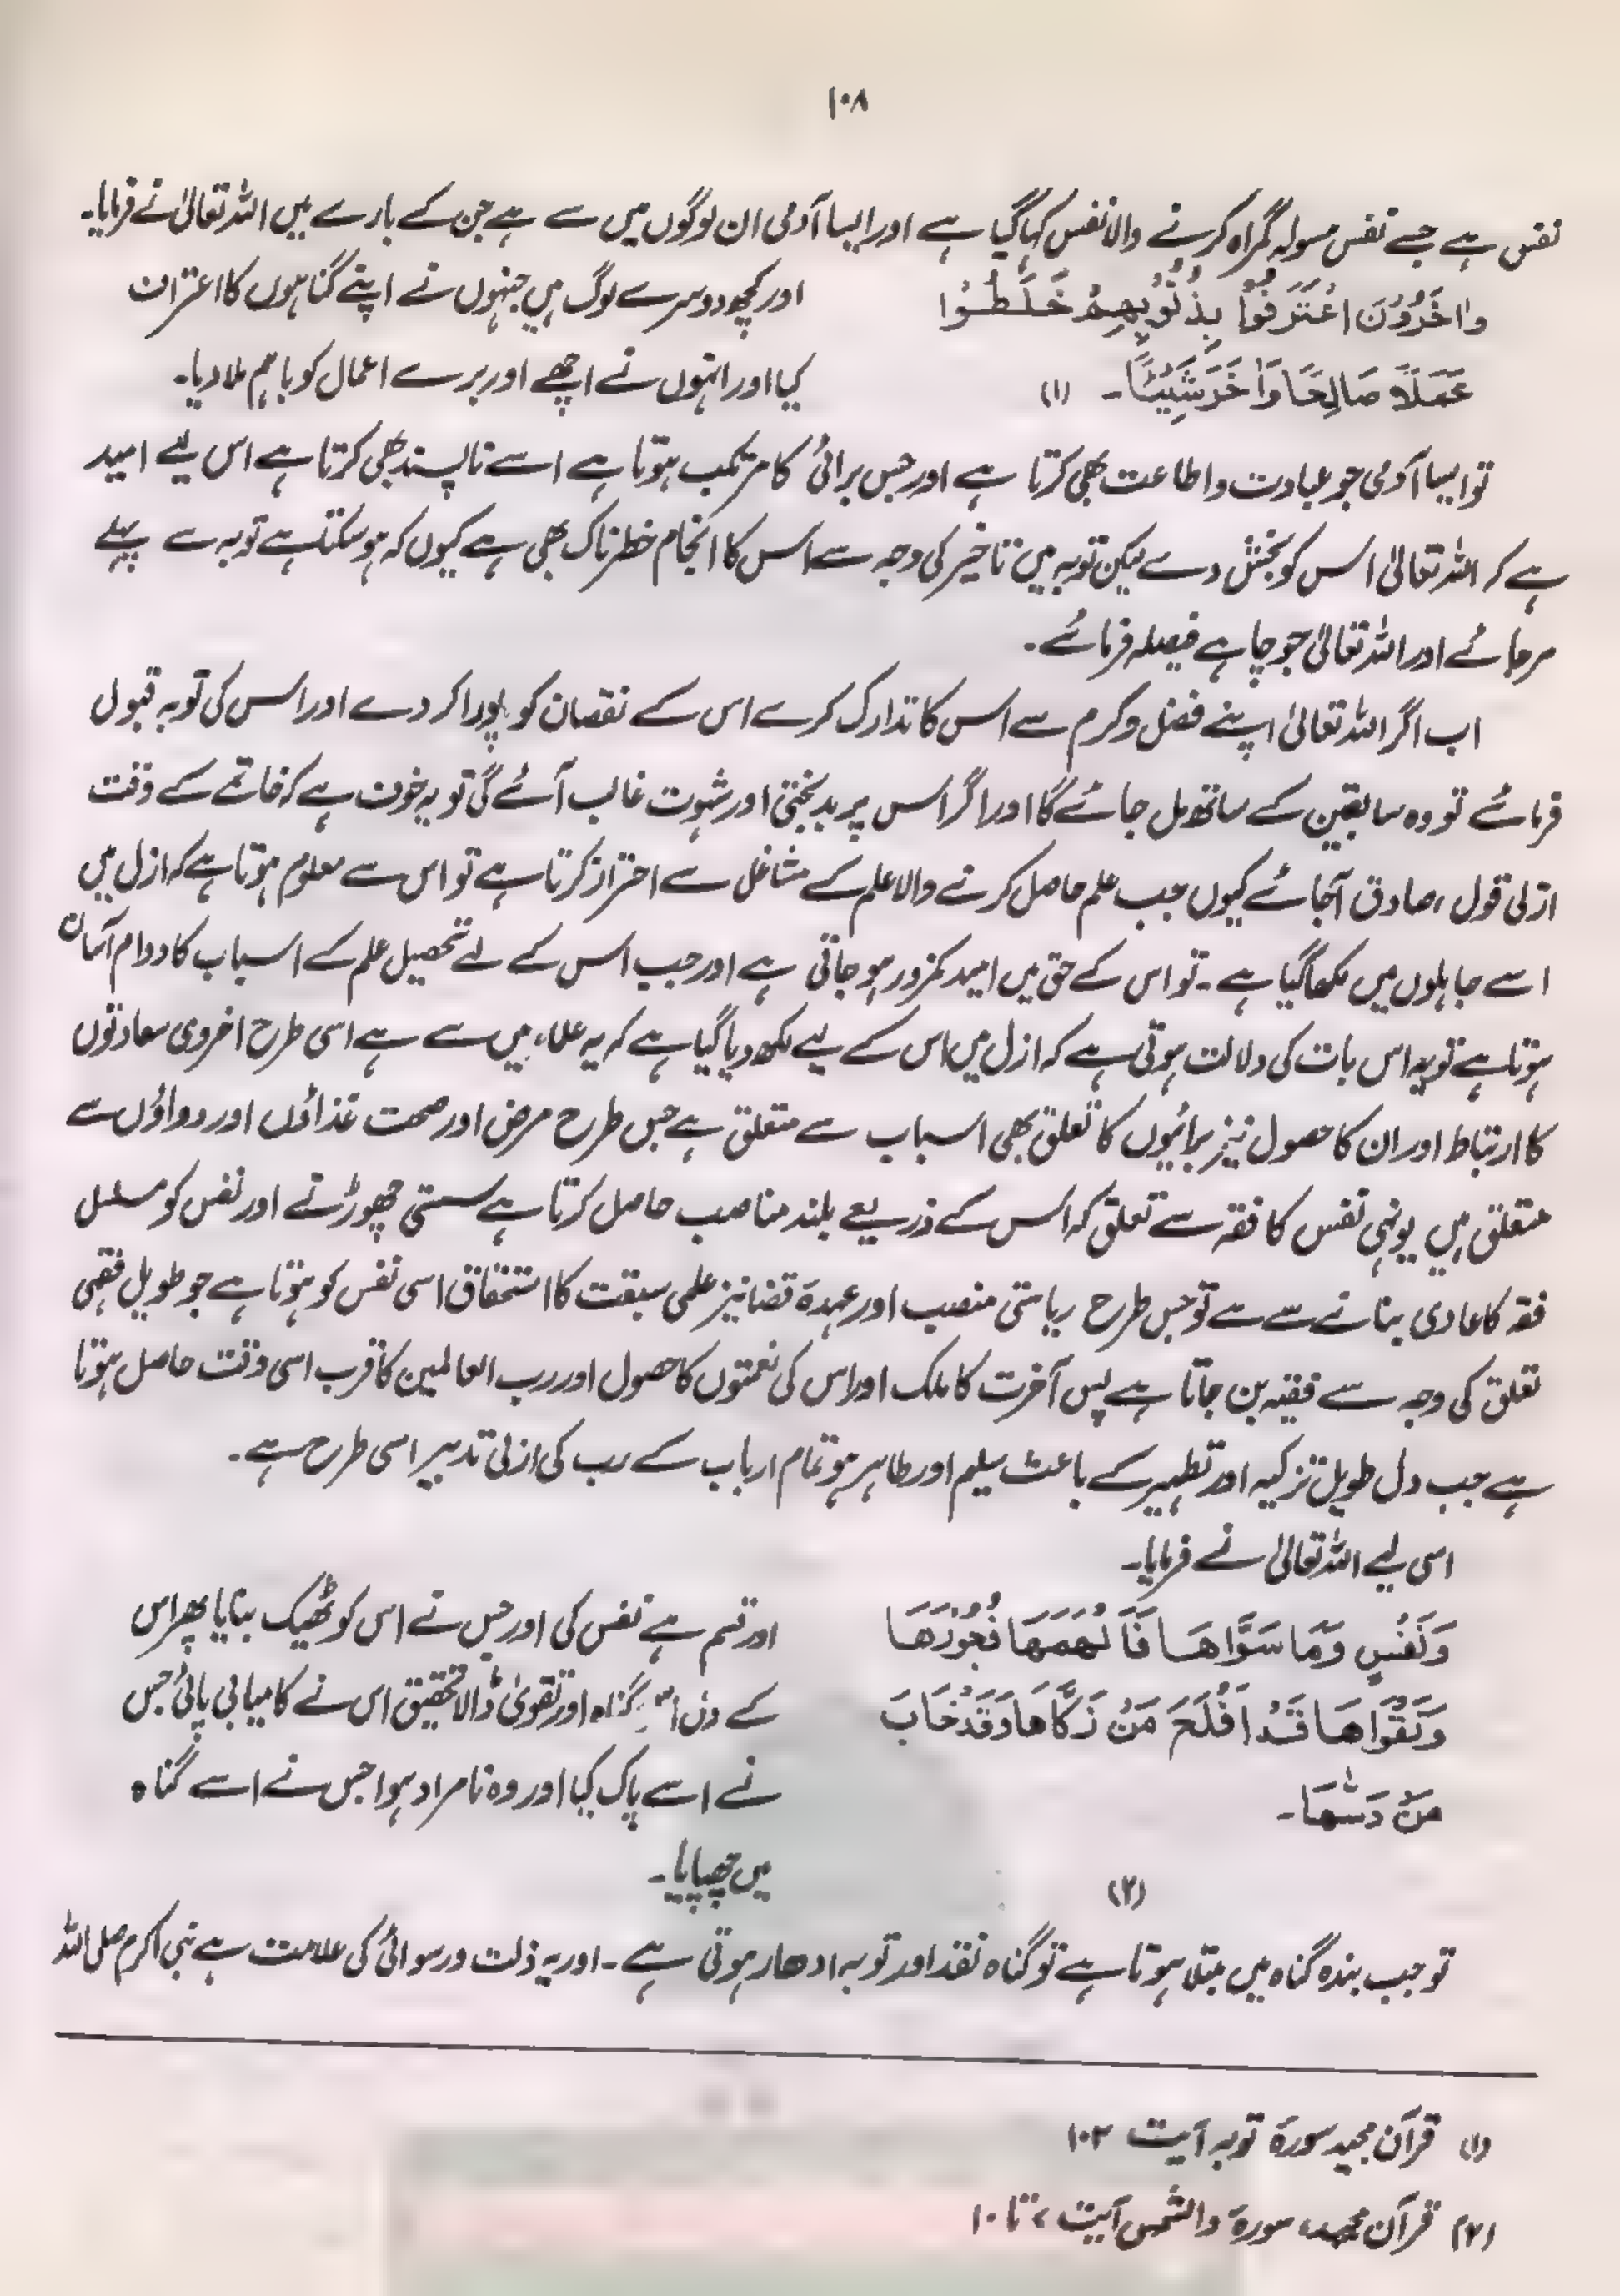 ۱۰۸
نفس ہے جسے نفس مسولہ گمراہ کرنے والا نفس کہا گیا ہے اور ایسا آدمی ان لوگوں میں سے ہے جن کے بارے میں اللہ تعالیٰ نے فرمایا۔
وَاٰخَرُوْنَ اعْتَرَفُوْا بِذُنُوْبِهِمْ خَلَطُوْا
عَمَلًا صَالِحًا وَاٰخَرَ سَيِّئًا۔ (۱)
اور کچھ دوسرے لوگ ہیں جنہوں نے اپنے گناہوں کا اعتراف
کیا اور انہوں نے اچھے اور برے اعمال کو باہم ملا دیا۔
تو ایسا آدمی جو عبادت و اطاعت بھی کرتا ہے اور جس برائی کا مرتکب ہوتا ہے اسے ناپسند بھی کرتا ہے اس لیے امید
ہے کہ اللہ تعالیٰ اس کو بخش دے لیکن توبہ میں تاخیر کی وجہ سے اس کا انجام خطرناک بھی ہے کیوں کہ ہو سکتا ہے توبہ سے پہلے
مر جائے اور اللہ تعالیٰ جو چاہے فیصلہ فرمائے۔
اب اگر اللہ تعالیٰ اپنے فضل و کرم سے اس کا تدارک کرے اس کے نقصان کو پورا کر دے اور اس کی توبہ قبول
فرمائے تو وہ سابقین کے ساتھ مل جائے گا اور اگر اس پر بدبختی اور شہوت غالب آئے گی تو یہ خوف ہے کہ خاتمے کے وقت
ازلی قول ، صادق آجائے کیوں جب علم حاصل کرنے والا علم کے مشاغل سے احتراز کرتا ہے تو اس سے معلوم ہوتا ہے کہ ازل میں
اسے جاہلوں میں لکھا گیا ہے ۔ تو اس کے حق میں امید کمزور ہو جاتی ہے اور جب اس کے لے تحصیل علم کے اسباب کا دوام آسان
ہوتا ہے تو یہ اس بات کی دلالت ہوتی ہے کہ ازل میں اس کے لیے لکھ دیا گیا ہے کہ یہ علماء میں سے ہے اسی طرح اخروی سعادتوں
کا ارتباط اور ان کا حصول نیز برائیوں کا تعلق بھی اسباب سے متعلق ہے جس طرح مرض اور صحت غذاؤں اور دواؤں سے
متعلق ہیں یونہی نفس کا فقہ سے تعلق کہ اس کے ذریعے بلند مناصب حاصل کرتا ہے سستی چھوڑنے اور نفس کو مسلسل
فقہ کا عادی بنانے سے سے تو جس طرح ریاستی منصب اور عہدۂ قضا نیز علمی سبقت کا استحقاق اسی نفس کو ہوتا ہے جو طویل فقہی
تعلق کی وجہ سے فقیہ بن جاتا ہے پس آخرت کا ملک اور اس کی نعمتوں کا حصول اور رب العالمین کا قرب اسی وقت حاصل ہوتا
ہے جب دل طویل تزکیہ اور تطہیر کے باعث سلیم اور طاہر ہو تمام ارباب کے رب کی ازلی تدبیر اسی طرح ہے۔
اسی لیے اللہ تعالیٰ نے فرمایا۔
وَنَفْسٍ وَّمَا سَوَّاهَا فَاَلْهَمَهَا فُجُوْرَهَا
وَتَقْوَاهَا قَدْ اَفْلَحَ مَنْ زَكَّاهَا وَقَدْ خَابَ
مَنْ دَسّٰهَا۔
(۲)
اور قسم ہے نفس کی اور جس نے اس کو ٹھیک بنایا پھر اس
کے دل گناہ اور تقویٰ ڈالا تحقیق اس نے کامیابی پائی جس
نے اسے پاک کیا اور وہ نامراد ہوا جس نے اسے گناہ
میں چھپایا۔
تو جب بندہ گناہ میں مبتلا ہوتا ہے تو گناہ نقد اور توبہ ادھار ہوتی ہے ۔ اور یہ ذلت و رسوائی کی علامت ہے نبی اکرم صلی اللہ
(۱) قرآن مجید سورۃ توبہ آیت ۱۰۲
(۲) قرآن مجید، سورۃ والشمس آیت ۷ تا ۱۰